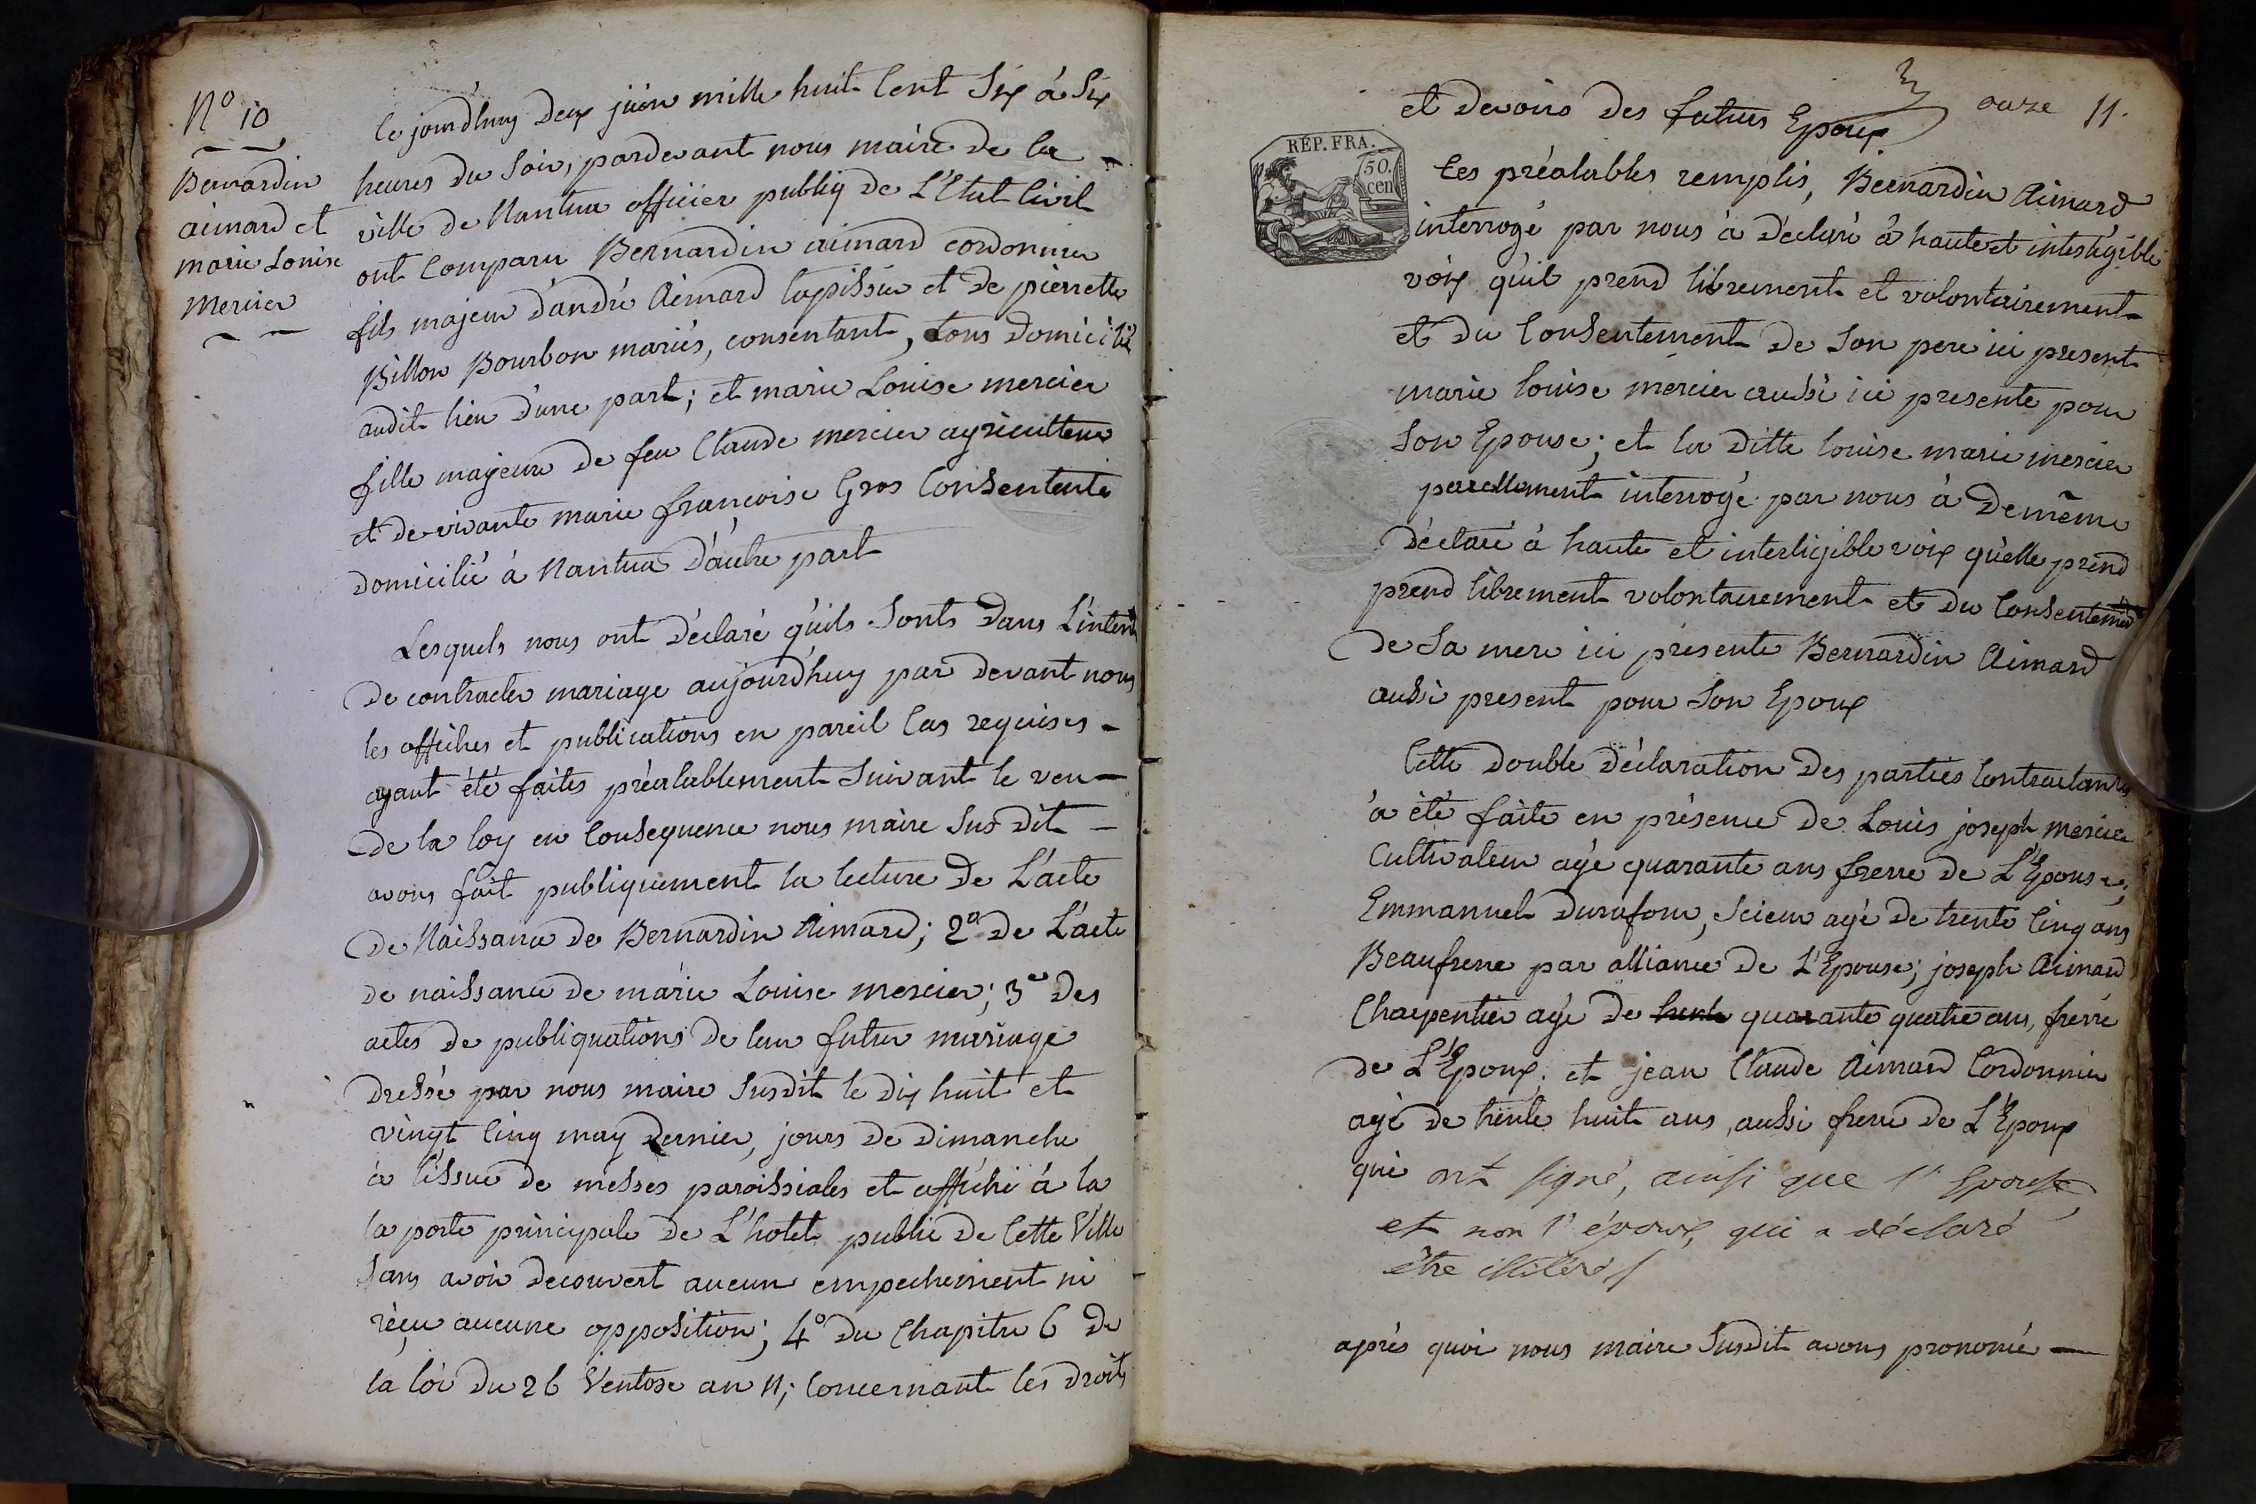 N° 10
Bernardin
aimard et
marie Louise
Mercier
Ce jourd'huy deux juin mille huit Cent Six à Six
heures du Soir, pardevant nous maire de la
ville de Nantua officier publiq de L'Etat Civil
ont Comparu Bernardin aimard cordonnier
fils majeur d'andré Aimard tapissier et de pierrette
Billon Bourbon mariés, consentant, tous domicilié
audit lieu d'une part; et marie Louise mercier
fille majeure de feu Claude mercier agriculteur
et de vivante marie francoise Gros Consentente
domicilié à Nantua d'autre part
Lesquels nous ont déclaré qu'ils Sonts dans L'intent
de contracter mariage aujourd'huy par devant nous
les affiches et publications en pareil Cas requises -
ayant été faites préalablement Suivant le veu -
de la loy en Consequence nous maire Sus dit -
avons fait publiquement la lecture de L'acte
de Naissance de Bernardin Aimard; 2° de L'acte
de naissance de marie Louise mercier; 3° des
actes de publiquations de leur futur mariage
dressé par nous maire Susdit le dix huit et
vingt Cinq may dernier, jours de dimanche
à l'issue de messes paroissiales et affiché à la
la porte principale de L'hotel public de Cette Ville
Sans avoir decouvert aucun empechement ni
réçu aucune opposition; 4° du Chapitre 6 de
la loi du 26 Ventose an 11; Concernant les droits
onze 11.
et devoirs des futurs Epoux
RÉP. FRA.
50.
cen
Ces préalables remplis, Bernardin Aimard
interrogé par nous à déclaré à haute et inteligible
voix qu'il prend librement et volontairement
et du Consentement de Son pere ici present
marie louise mercier aussi ici presente pour
Son Epouse; et la ditte louise marie mercier
parellement interrogé par nous à de même
déclaré à haute et interligible voix qu'elle prend
prend librement volontairement et du Consentement
de Sa mere ici présente Bernardin Aimard
aussi present pour Son Epoux
Cette double déclaration des parties Contractantes
à été faite en présence de Louis joseph mercier
Cultivateur agé quarante ans frerre de L'Epouse,
Emmanuel Durafour, Scieur agé de trente Cinq ans
Beaufrerre par alliance de L'Epouse; joseph Aimard
Charpentier agé de trente quarante quatre ans, frérre
de L'Epoux; et jean Claude Aimard Cordonnier
agé de trente huit ans, aussi frerre de L'Epoux
qui ont signé, ainsi que l'Epouse
et non l'époux, qui a déclaré
être illitéré
aprés quoi nous maire Susdit avons prononcé -